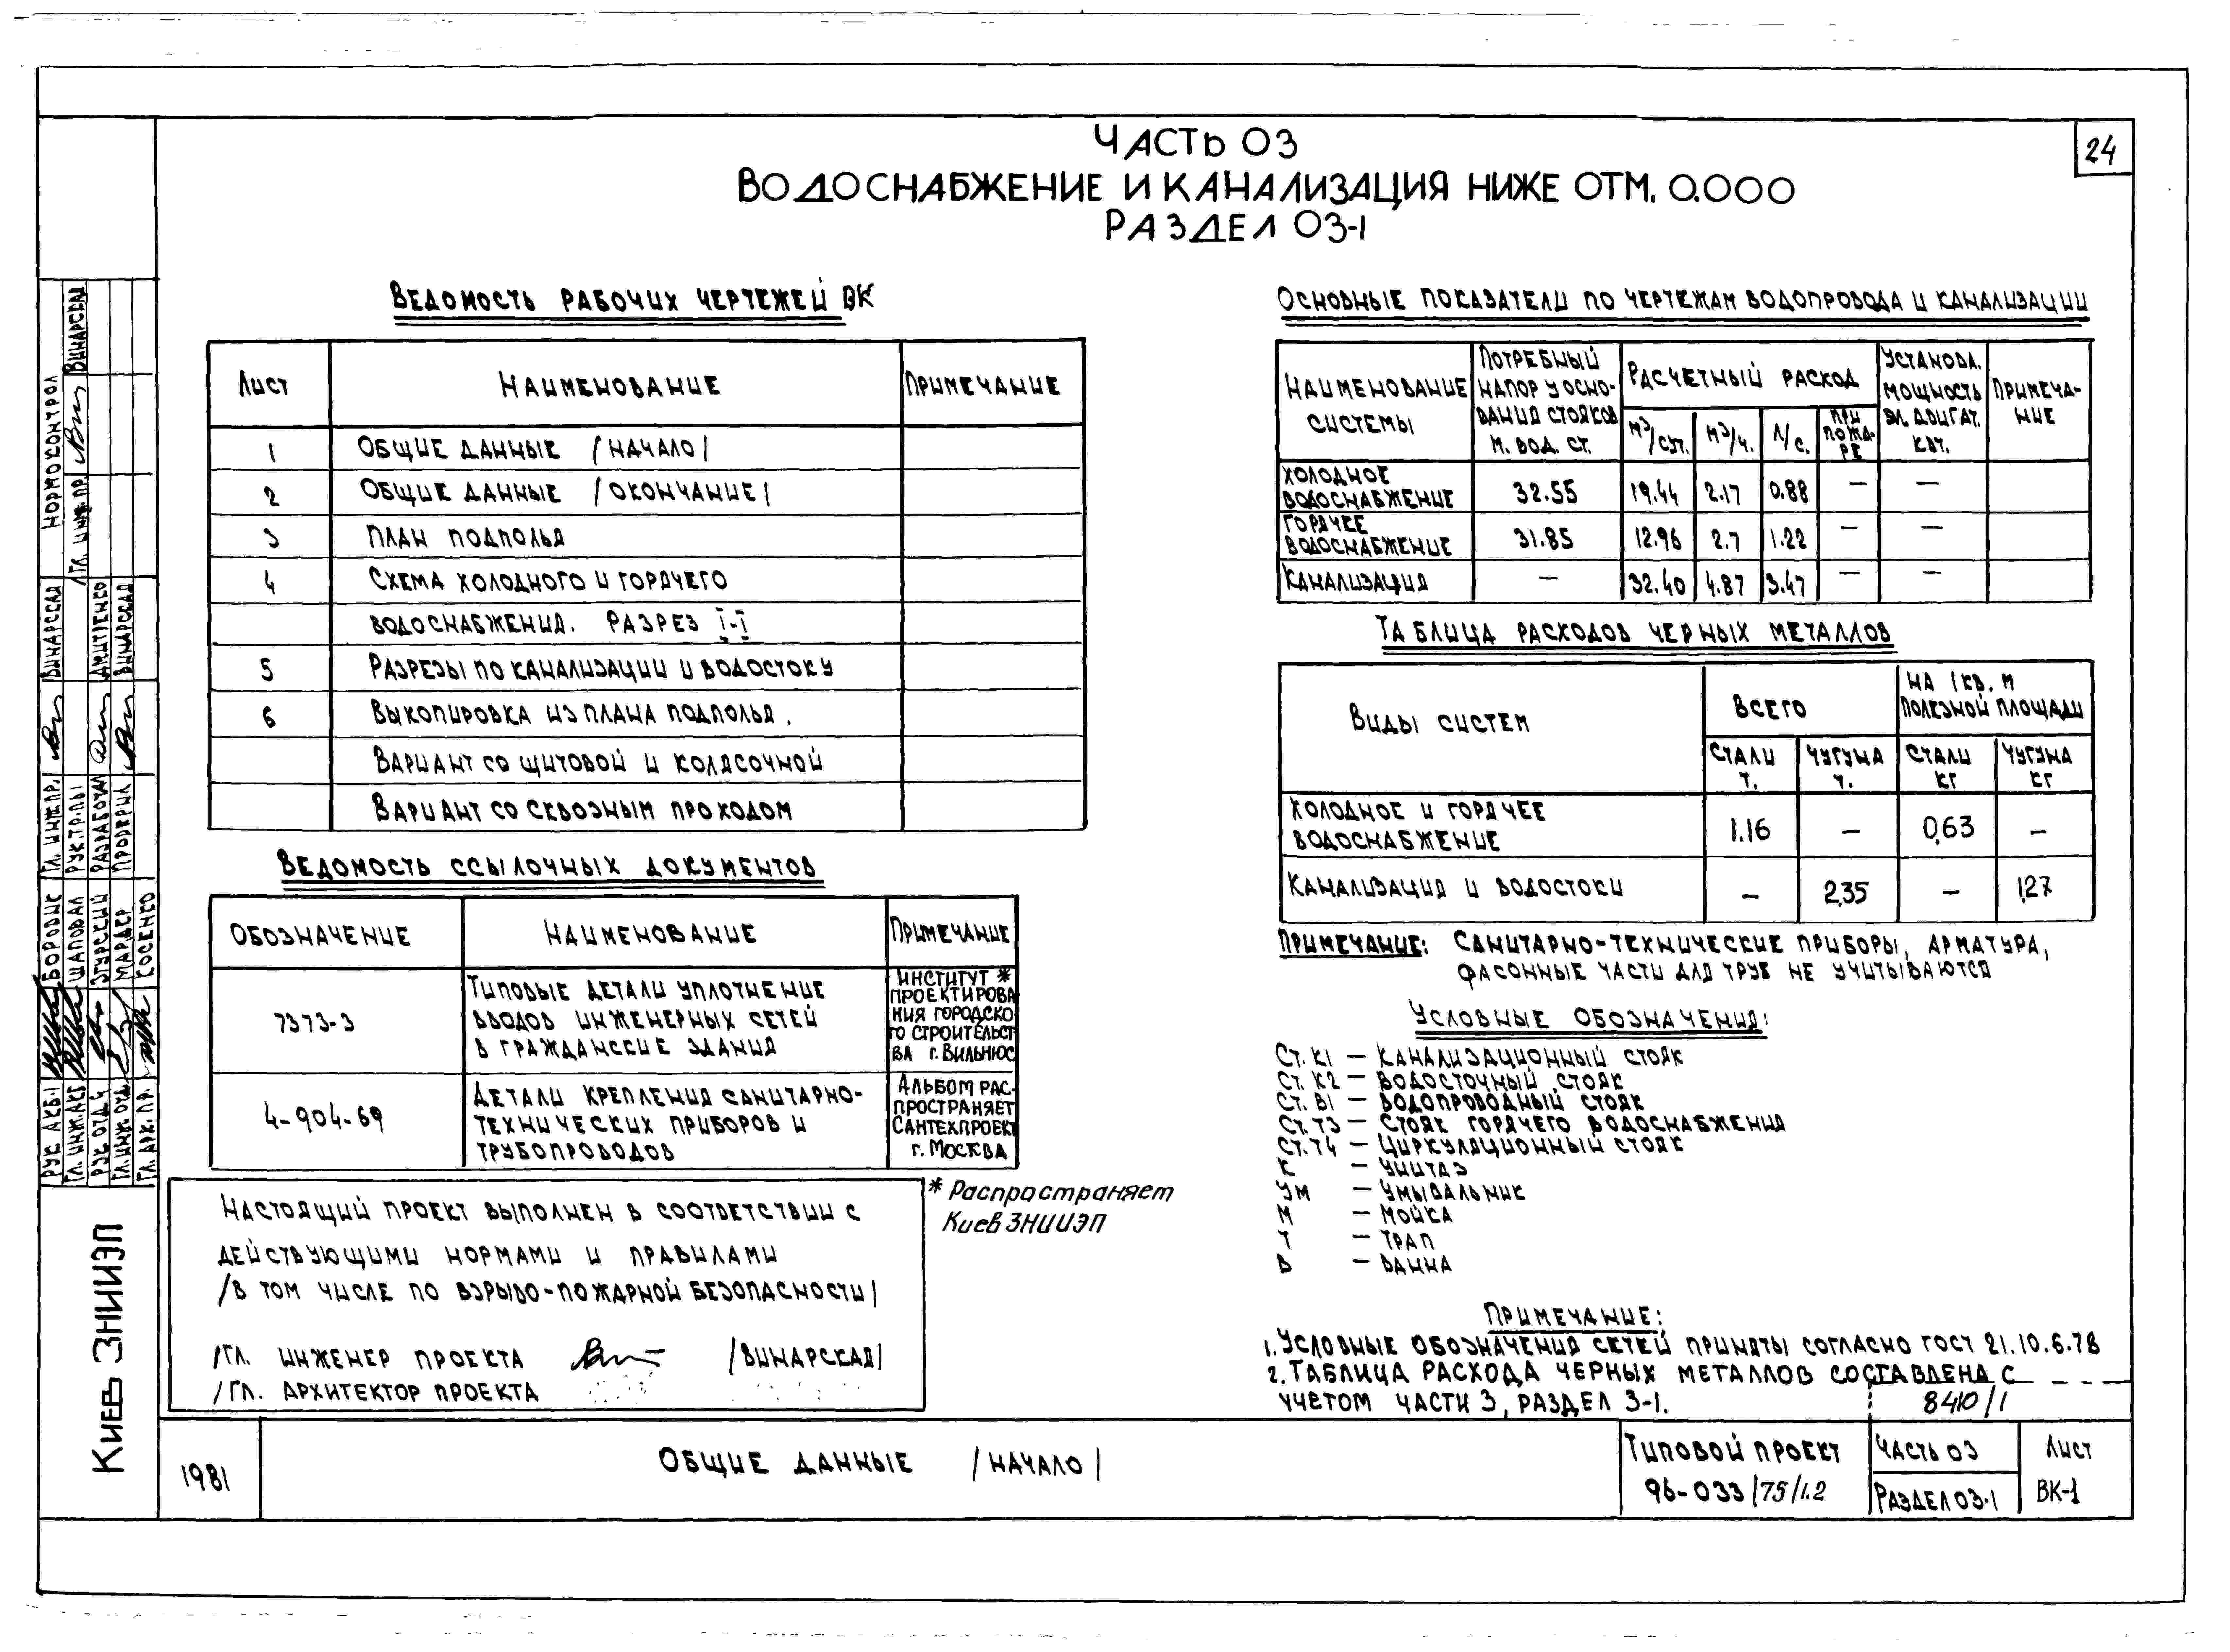 24
ЧАСТЬ 03
ВОДОСНАБЖЕНИЕ И КАНАЛИЗАЦИЯ НИЖЕ ОТМ. 0.000
РАЗДЕЛ 03-1
ВЕДОМОСТЬ РАБОЧИХ ЧЕРТЕЖЕЙ ВК
ЛИСТ НАИМЕНОВАНИЕ ПРИМЕЧАНИЕ
1 ОБЩИЕ ДАННЫЕ /НАЧАЛО/
2 ОБЩИЕ ДАННЫЕ /ОКОНЧАНИЕ/
3 ПЛАН ПОДПОЛЬЯ
4 СХЕМА ХОЛОДНОГО И ГОРЯЧЕГО
ВОДОСНАБЖЕНИЯ. РАЗРЕЗ I-I
5 РАЗРЕЗЫ ПО КАНАЛИЗАЦИИ И ВОДОСТОКУ
6 ВЫКОПИРОВКА ИЗ ПЛАНА ПОДПОЛЬЯ.
ВАРИАНТ СО ЩИТОВОЙ И КОЛЯСОЧНОЙ
ВАРИАНТ СО СКВОЗНЫМ ПРОХОДОМ
ВЕДОМОСТЬ ССЫЛОЧНЫХ ДОКУМЕНТОВ
ОБОЗНАЧЕНИЕ НАИМЕНОВАНИЕ ПРИМЕЧАНИЕ
7373-3
ТИПОВЫЕ ДЕТАЛИ УПЛОТНЕНИЕ
ВВОДОВ ИНЖЕНЕРНЫХ СЕТЕЙ
В ГРАЖДАНСКИЕ ЗДАНИЯ
ИНСТИТУТ *
ПРОЕКТИРОВА
НИЯ ГОРОДСКО-
ГО СТРОИТЕЛЬСТ
ВА Г. ВИЛЬНЮС
4-904-69
ДЕТАЛИ КРЕПЛЕНИЯ САНИТАРНО-
ТЕХНИЧЕСКИХ ПРИБОРОВ И
ТРУБОПРОВОДОВ
АЛЬБОМ РАС-
ПРОСТРАНЯЕТ
САНТЕХПРОЕКТ
Г. МОСКВА
* Распространяет
Киев ЗНИИЭП
НАСТОЯЩИЙ ПРОЕКТ ВЫПОЛНЕН В СООТВЕТСТВИИ С
ДЕЙСТВУЮЩИМИ НОРМАМИ И ПРАВИЛАМИ
/В ТОМ ЧИСЛЕ ПО ВЗРЫВО-ПОЖАРНОЙ БЕЗОПАСНОСТИ/
/ГЛ. ИНЖЕНЕР ПРОЕКТА /ВИНАРСКАЯ/
/ГЛ. АРХИТЕКТОР ПРОЕКТА
ОСНОВНЫЕ ПОКАЗАТЕЛИ ПО ЧЕРТЕЖАМ ВОДОПРОВОДА И КАНАЛИЗАЦИИ
НАИМЕНОВАНИЕ
СИСТЕМЫ
ПОТРЕБНЫЙ
НАПОР У ОСНО-
ВАНИЯ СТОЯКОВ
М. ВОД. СТ.
РАСЧЕТНЫЙ РАСХОД
М³/СУТ. М³/Ч. Л/С.
ПРИ
ПОЖА-
РЕ
УСТАНОВЛ.
МОЩНОСТЬ
ЭЛ. ДВИГАТ.
КВТ.
ПРИМЕЧА-
НИЕ
ХОЛОДНОЕ
ВОДОСНАБЖЕНИЕ 32.55 19.44 2.17 0.88 — —
ГОРЯЧЕЕ
ВОДОСНАБЖЕНИЕ 31.85 12.96 2.7 1.22 — —
КАНАЛИЗАЦИЯ — 32.40 4.87 3.47 — —
ТАБЛИЦА РАСХОДОВ ЧЕРНЫХ МЕТАЛЛОВ
ВИДЫ СИСТЕМ
ВСЕГО
НА 1 КВ. М
ПОЛЕЗНОЙ ПЛОЩАДИ
СТАЛИ ЧУГУНА СТАЛИ ЧУГУНА
Т. Т. КГ КГ
ХОЛОДНОЕ И ГОРЯЧЕЕ
ВОДОСНАБЖЕНИЕ 1.16 — 0,63 —
КАНАЛИЗАЦИЯ И ВОДОСТОКИ — 2,35 — 1,27
ПРИМЕЧАНИЕ: САНИТАРНО-ТЕХНИЧЕСКИЕ ПРИБОРЫ, АРМАТУРА,
ФАСОННЫЕ ЧАСТИ ДЛЯ ТРУБ НЕ УЧИТЫВАЮТСЯ
УСЛОВНЫЕ ОБОЗНАЧЕНИЯ:
СТ. К1 — КАНАЛИЗАЦИОННЫЙ СТОЯК
СТ. К2 — ВОДОСТОЧНЫЙ СТОЯК
СТ. В1 — ВОДОПРОВОДНЫЙ СТОЯК
СТ. Т3 — СТОЯК ГОРЯЧЕГО ВОДОСНАБЖЕНИЯ
СТ. Т4 — ЦИРКУЛЯЦИОННЫЙ СТОЯК
К — УНИТАЗ
УМ — УМЫВАЛЬНИК
М — МОЙКА
Т — ТРАП
В — ВАННА
ПРИМЕЧАНИЕ:
1. УСЛОВНЫЕ ОБОЗНАЧЕНИЯ СЕТЕЙ ПРИНЯТЫ СОГЛАСНО ГОСТ 21.10.6.78
2. ТАБЛИЦА РАСХОДА ЧЕРНЫХ МЕТАЛЛОВ СОСТАВЛЕНА С
УЧЕТОМ ЧАСТИ 3, РАЗДЕЛ 3-1.
8410/1
1981
ОБЩИЕ ДАННЫЕ /НАЧАЛО/
ТИПОВОЙ ПРОЕКТ
96-033/75/1.2
ЧАСТЬ 03
РАЗДЕЛ 03-1
ЛИСТ
ВК-1
НОРМОКОНТРОЛ
ГЛ. ИНЖ. ПР. ВИНАРСКАЯ
ГЛ. ИНЖ. ПР. ВИНАРСКАЯ
РУК. ГР.
РАЗРАБОТАЛ ДМИТРЕНКО
ПРОВЕРИЛ ВИНАРСКАЯ
РУК АКБ-1 БОРОВИК
ГЛ. ИНЖ. АКБ ШАПОВАЛ
РУК ОТД 4 ЗГУРСКИЙ
ГЛ. ИНЖ. ОТД МАРДЕР
ГЛ. АРХ. ПР. КОСЕНКО
КИЕВ ЗНИИЭП